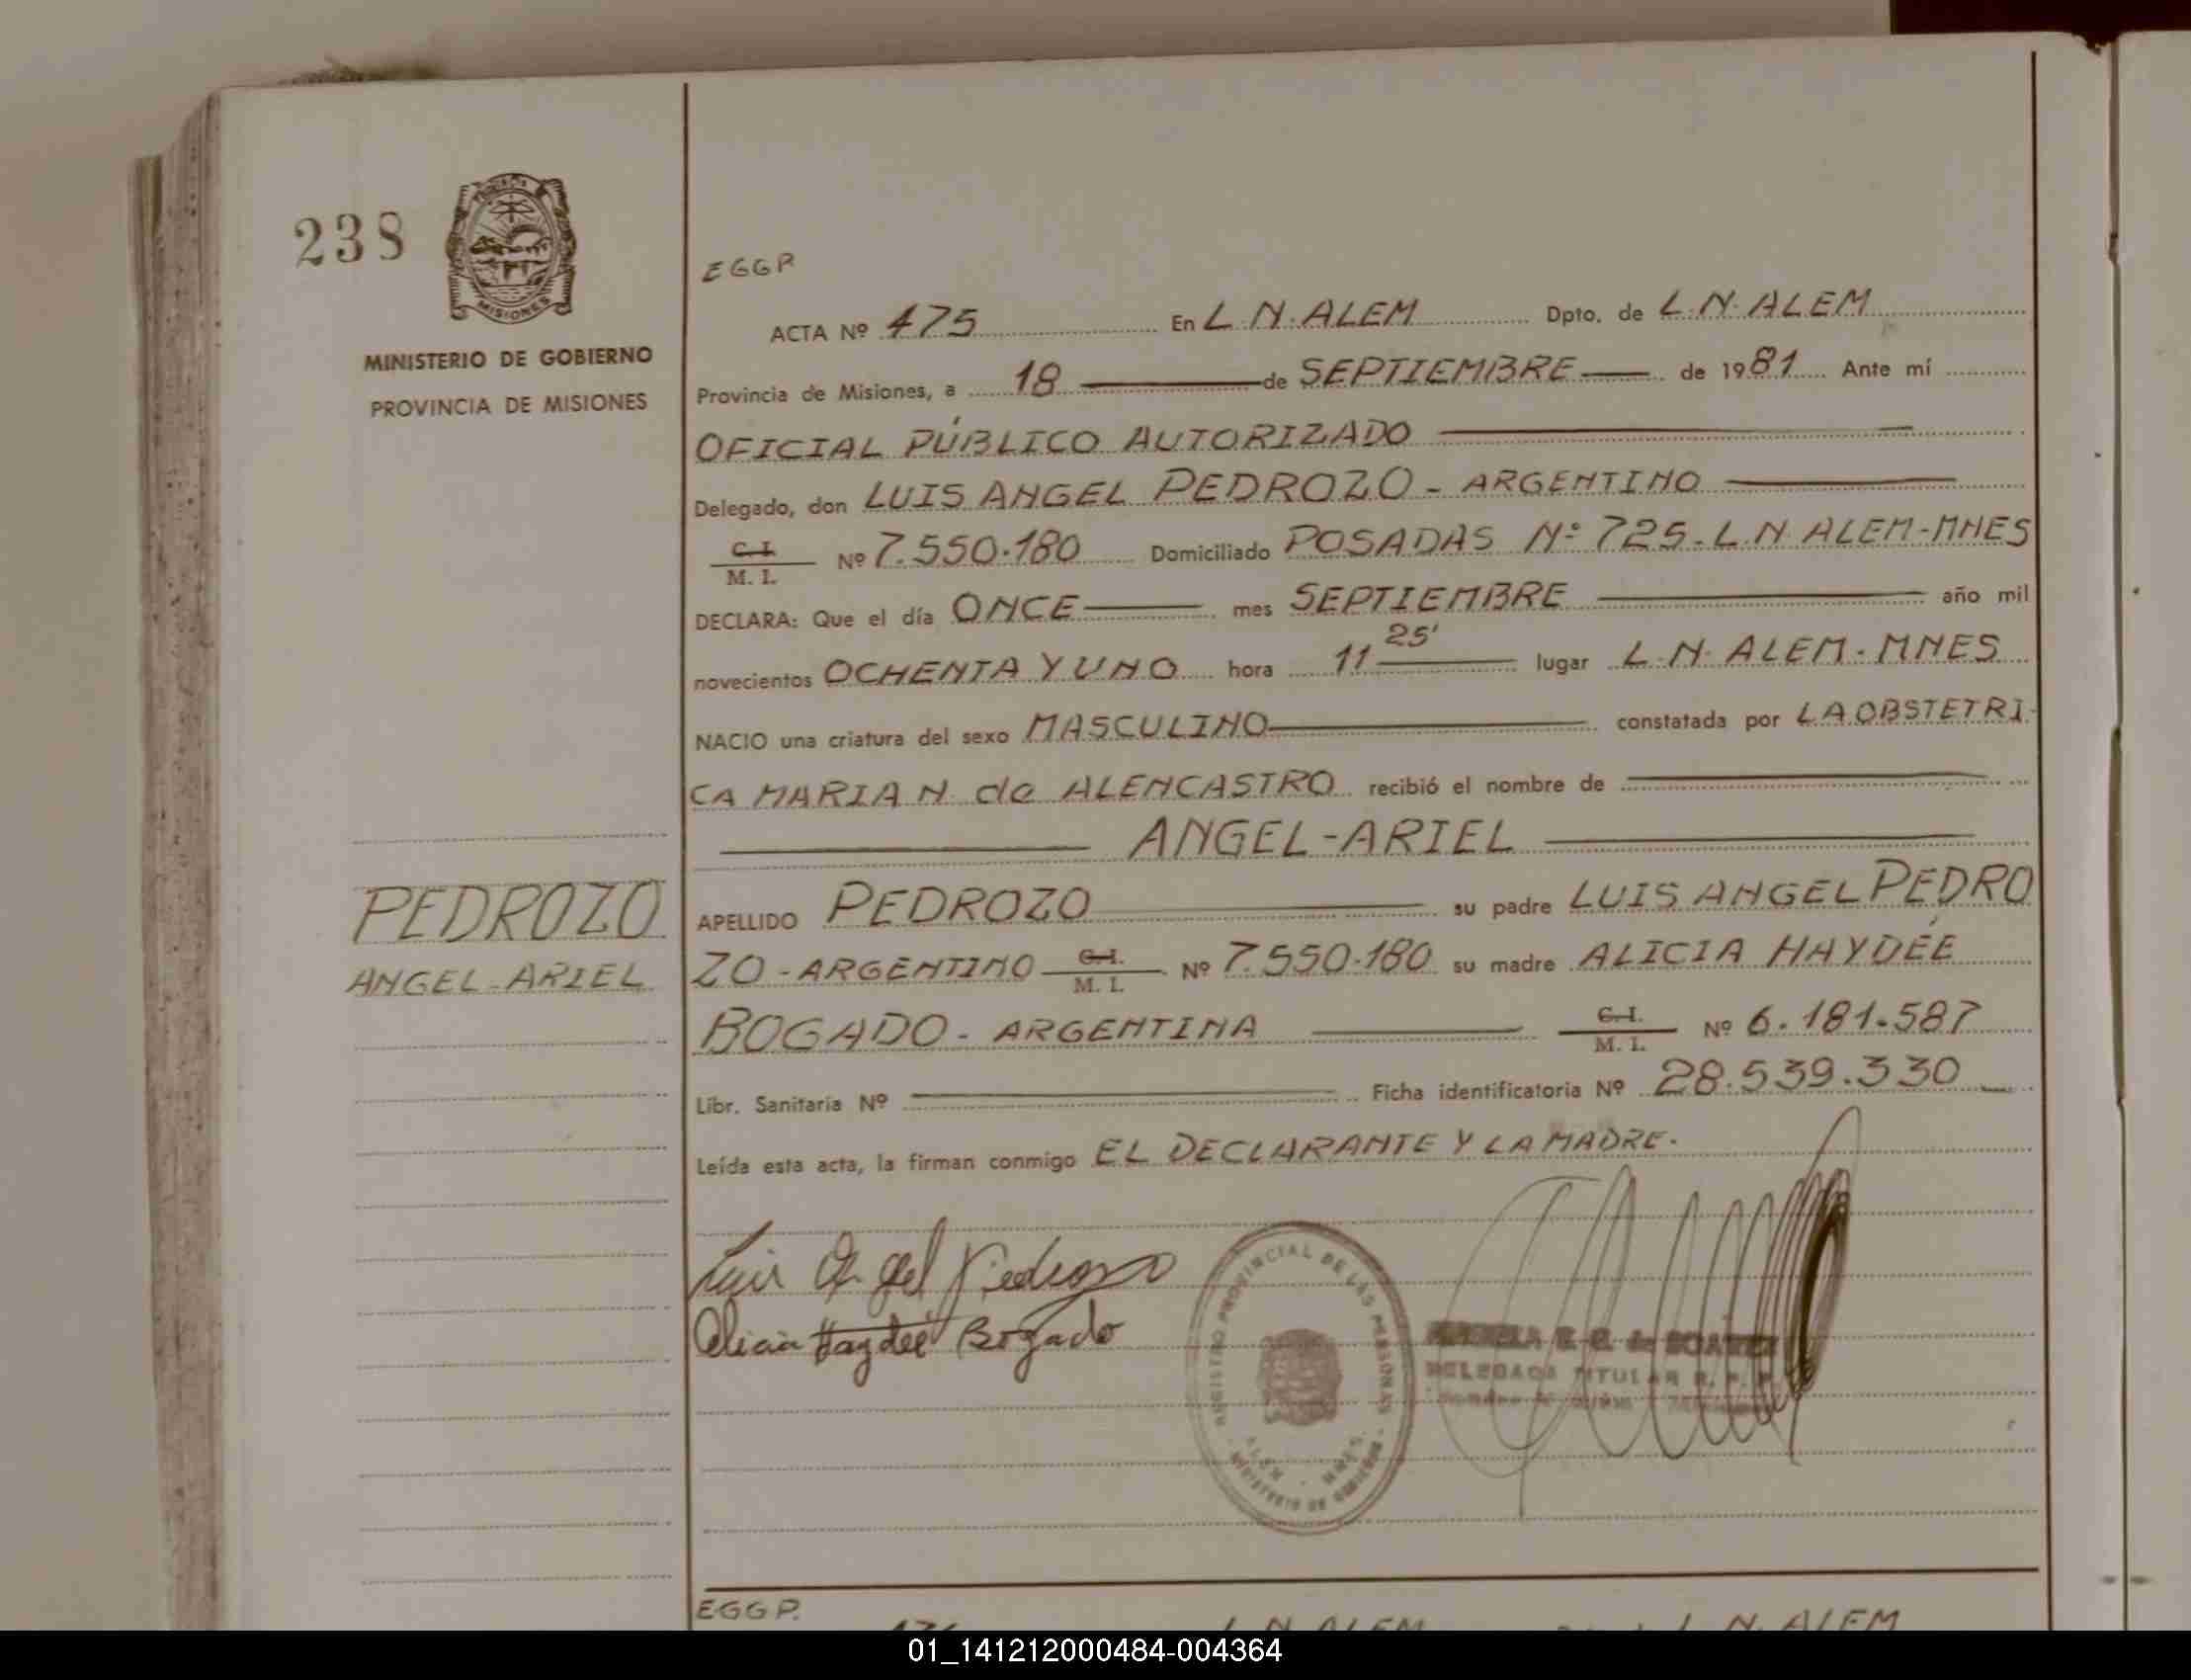 238
MISIONES
MINISTERIO DE GOBIERNO
PROVINCIA DE MISIONES
EGGP
ACTA Nº 475 En L N. ALEM Dpto. de L.N. ALEM
Provincia de Misiones, a 18 de SEPTIEMBRE de 1981 Ante mí
OFICIAL PÚBLICO AUTORIZADO
Delegado, don LUIS ANGEL PEDROZO - ARGENTINO
C. I. / M. I. Nº 7.550.180 Domiciliado POSADAS Nº 725. L.N ALEM-MNES
DECLARA: Que el día ONCE mes SEPTIEMBRE año mil
novecientos OCHENTA Y UNO hora 11 25' lugar L.N. ALEM. MNES
NACIO una criatura del sexo MASCULINO constatada por LA OBSTETRI-
CA MARIA N. de ALENCASTRO recibió el nombre de
ANGEL-ARIEL
PEDROZO
ANGEL-ARIEL
APELLIDO PEDROZO su padre LUIS ANGEL PEDRO
ZO - ARGENTINO C. I. / M. I. Nº 7.550.180 su madre ALICIA HAYDÉE
BOGADO - ARGENTINA C. I. / M. I. Nº 6.181.587
Libr. Sanitaria Nº Ficha identificatoria Nº 28.539.330
Leída esta acta, la firman conmigo EL DECLARANTE Y LA MADRE.
Luis Angel Pedrozo
Alicia Haydée Bogado
REGISTRO PROVINCIAL DE LAS PERSONAS
ALEM - MNES.
MINISTERIO DE GOBIERNO
E. G. de SOAREZ
DELEGADA TITULAR R. P. P.
EGGP.
L N ALEM L. N. ALEM
01_141212000484-004364